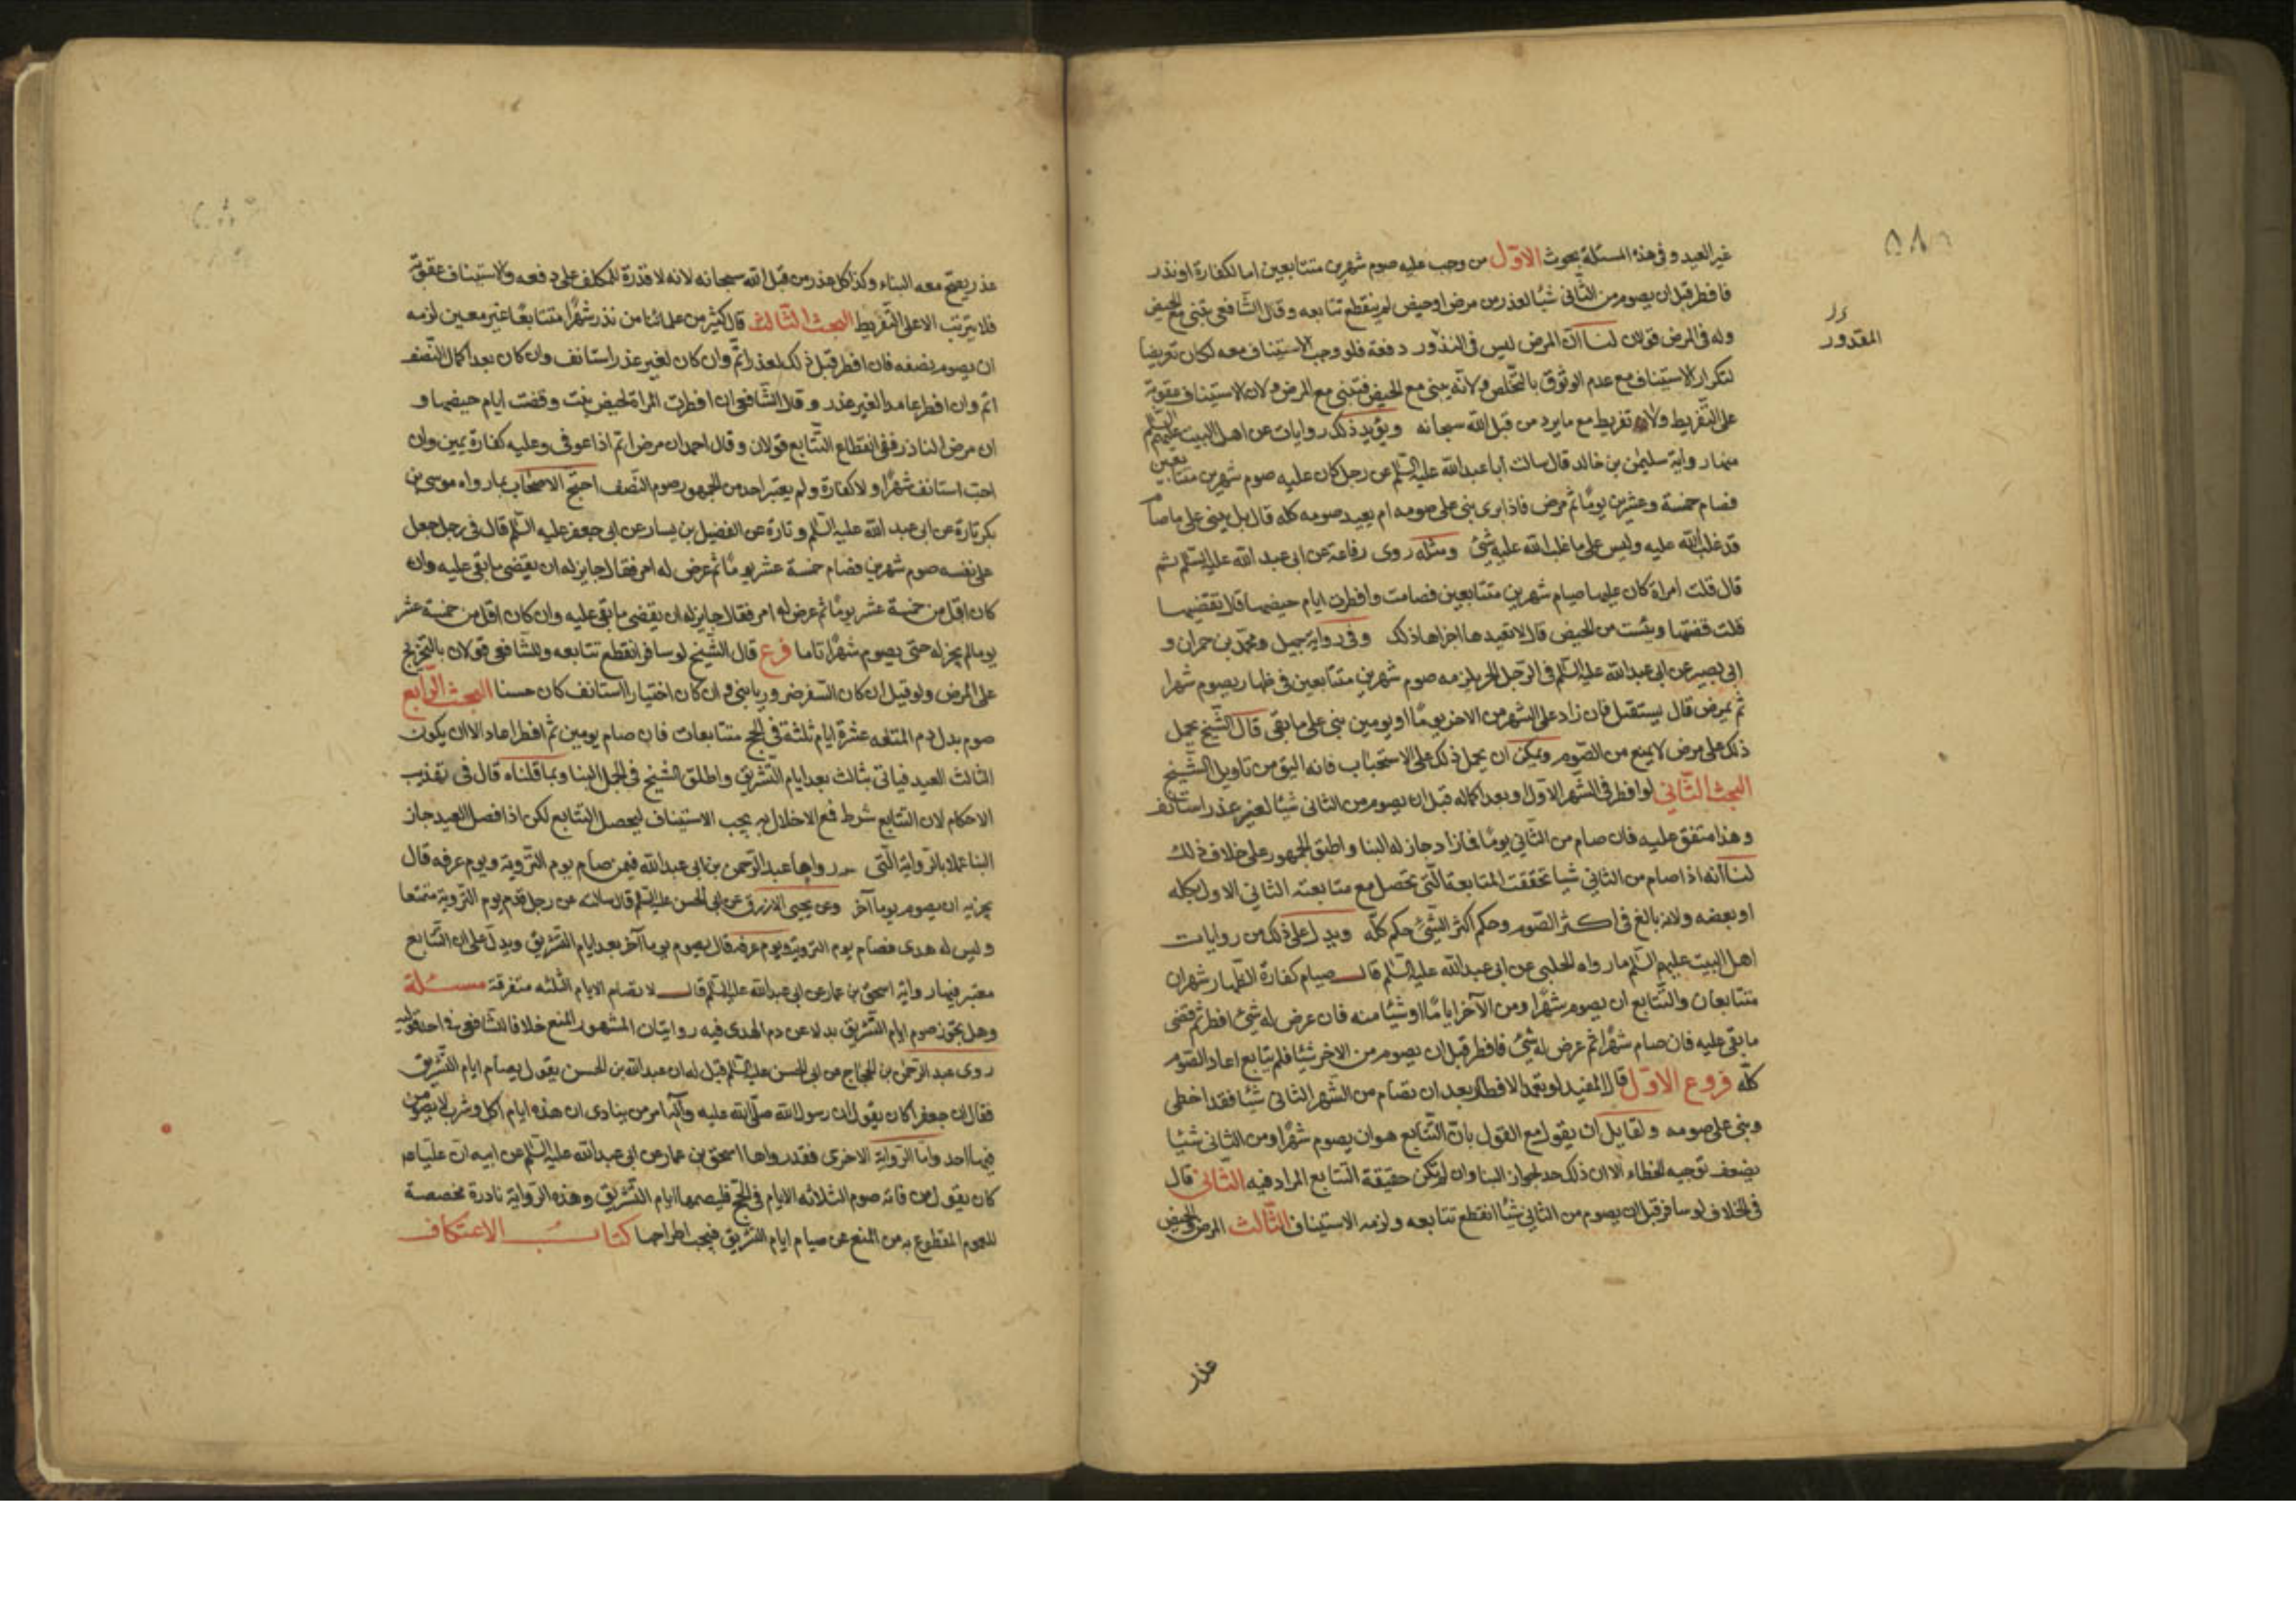 غير العيد و فى هذه المسئلة بحوث الاوّل من وجب عليه صوم شهرين متتابعين اما لكفارة او نذر
فافطر قبل ان يصوم من الثّانى شيئا لعذر من مرض او حيض لم ينقطع تتابعه و قال الشّافعى تبنى مع الحيض
وله فى المرض قولان لنا انّ المرض ليس فى دفعه فلو وجب الاستيناف معه لكان تعريضا
لتكرار الاستيناف مع عدم الوثوق بالتّخلص ولانّه يبنى مع الحيض فتبنى مع المرض ولان الاستيناف عقوبة
على التّفريط ولا تفريط مع ما يرد من قبل الله سبحانه ويؤيد ذلك روايات عن اهل البيت عليهم السّلم
منها رواية سليمٰن بن خالد قال سالت ابا عبد الله عليه السّلم عن رجل كان عليه صوم شهرين متتابعين
فصام خمسة وعشرين يومًا ثمّ مرض فاذا برى يبنى على صومه ام يعيد صومه كله قال بل يبنى على ما صام
قد غلب الله عليه وليس على ما غلب الله عليه شئ ومثله روى رفاعة عن ابى عبد الله عليه السّلم
قال قلت امراة كان عليها صيام شهرين متتابعين فصامت وافطرت ايام حيضها قال تقضيها
قلت قضتها ويئست من الحيض قال لا تعيدها اجزاها ذلك وفى رواية جميل ومحمّد بن حمران و
ابى بصير عن ابى عبد الله عليه السّلم فى الرّجل الحر يلزمه صوم شهرين متتابعين فى ظهار يصوم شهرا
ثمّ يمرض قال يستقبل فان زاد على الشهر من الاخر يومًا او يومين بنى على ما بقى قال الشّيخ يحمل
ذلك على مرض لا يمنع من الصّوم ويمكن ان يحمل ذلك على الاستحباب فانه اليق من تاويل الشّيخ
البحث الثّاني لو افطر فى الشّهر الاوّل او بعد اكماله قبل ان يصوم من الثانى شيئا لغير عذر استانف
وهذا متفق عليه فان صام من الثّاني يومًا فازاد جاز له البنا واطبق الجمهور على خلاف ذلك
لنا انّه اذا صام من الثاني شيا تحققت المتابعة الّتى تحصل مع متابعته الثاني الاول بكله
او بعضه ولانه بالغ فى اكثر الصّوم وحكم اكثر الشّئ حكم كلّه ويدل على ذلك من روايات
اهل البيت عليهم السّلم ما رواه الحلبى عن ابى عبد الله عليه السّلم قال صيام كفارة الظّهار شهران
متتابعان والتّتابع ان يصوم شهرًا ومن الآخر ايامًا او شيئا منه فان عرض له شئ افطر ثم قضى
ما بقى عليه فان صام شهرًا ثم عرض له شئ فافطر قبل ان يصوم من الاخر شيئا فلم يتابع اعاد الصّوم
كلّه فروع الاوّل قال المفيد لو تعمد الافطار بعد ان تصام من الشّهر الثانى شيئا فقد اخطى
وبنى على صومه ولقايل ان يقول مع القول بانّ التّتابع هو ان يصوم شهرًا ومن الثانى شيئا
يضعف توجيه الخطاء الا ان ذلك حد لجواز البنا وان لم تكن حقيقة التتابع المراد فيه الثّانى قال
فى الخلاف لو سافر قبل ان يصوم من الثاني شيئًا انقطع تتابعه ولزمه الاستيناف الثّالث المرض والحيض
المقدور
عذر
عذر يصحّ معه البناء وكذا كل عذر من قبل الله سبحانه لانه لا قدرة للمكلف على دفعه والاستيناف عقوبة
فلا يترتب الا على التّفريط البحث الثّالث قال كثير من علمائنا من نذر شهرًا متتابعًا غير معين لزمه
ان يصوم نصفه فان افطر قبل ذلك لعذر اتمّ وان كان لغير عذر استانف وان كان بعد اكمال النّصف
اتم وان افطر عامدا لغير عذر وقال الشّافعى ان افطرت المراة لحيض بنت وقضت ايام حيضها و
ان مرض الناذر ففى انقطاع التّتابع قولان وقال احمد ان مرض اتم اذا عوفى وعليه كفارة يمين وان
احبّ استانف شهرًا ولا كفارة ولم يعتبر احد من الجمهور صوم النّصف احتجّ الاصحاب بما رواه موسى بن
بكر تارة عن ابى عبد الله عليه السّلم وتارة عن الفضيل بن يسار عن ابى جعفر عليه السّلم قال فى رجل جعل
على نفسه صوم شهرين فصام خمسة عشر يومًا ثم عرض له امر فقال جايز له ان يقضى ما بقى عليه وان
كان اقل من خمسة عشر يومًا ثم عرض له امر فقال جايز له ان يقضى ما بقى عليه وان كان اقل من خمسة عشر
يوما لم يجز له حتى يصوم شهرًا تاما فرع قال الشّيخ لو سافر انقطع تتابعه وللشّافعى قولان بالتّخريج
على المرض ولو قيل ان كان السّفر ضروريا بنى وان كان اختيارا استانف كان حسنا البحث الرّابع
صوم بدل دم المتعه عشرة ايام ثلثة فى الحج متتابعات فان صام يومين ثم افطر اعاد الا ان يكون
الثالث العيد فياتى بثالث بعد ايام التّشريق واطلق الشيخ فى الجمل البنا وبما قلناه قال فى تهذيب
الاحكام لان التتابع شرط فمع الاخلال به يجب الاستيناف ليحصل التتابع لكن اذا فصل العيد جاز
البنا عملا بالرّواية الّتى رواها عبد الرّحمن بن ابى عبد الله فيمن صام يوم التّروية ويوم عرفه قال
يجزيه ان يصوم يوما آخر وعن يحيى الازرق عن ابى الحسن عليه السّلم قال سالته عن رجل قدم يوم التّروية متمتعا
وليس له هدى فصام يوم التروية ويوم عرفه قال يصوم يوما آخر بعد ايام التّشريق ويدلّ على ان التّتابع
معتبر فيها رواية اسحق بن عمار عن ابى عبد الله عليه السّلم قال لا تصام الايام الثلثه متفرقة مسئلة
وهل يجوز صوم ايام التّشريق بدلا عن دم الهدى فيه روايتان المشهور المنع خلافا للشّافعى فى احد قوليه
روى عبد الرّحمٰن بن الحجاج عن ابى الحسن عليه السّلم قيل له ان عبد الله بن الحسن يقول يصام ايام التّشريق
فقال ان جعفرا كان يقول ان رسول الله صلّى الله عليه وآله امر من ينادى ان هذه ايام اكل وشرب لا يصومن
فيها احد وامّا الرّواية الاخرى فقد رواها اسحق بن عمار عن ابى عبد الله عليه السّلم عن ابيه انّ عليّا عم
كان يقول من فاته صوم الثلاثه الايام فى الحجّ فليصمها ايام التّشريق وهذه الرّواية نادرة مخصصة
للعموم المقطوع به من المنع عن صيام ايام التّشريق فيجب اطراحها كتاب الاعتكاف